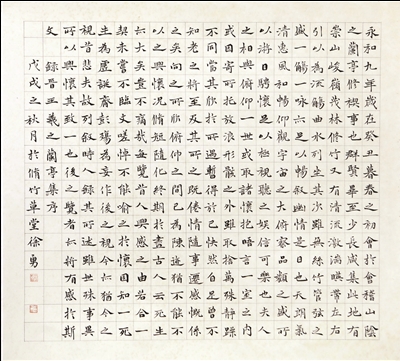 永和九年歲在癸丑暮春之初會於會稽山陰
之蘭亭脩禊事也群賢畢至少長咸集此地有
崇山峻嶺茂林脩竹又有清流激湍暎帶左右
引以為流觴曲水列坐其次雖無絲竹管弦之
盛一觴一詠亦足以暢敘幽情是日也天朗氣
清惠風和暢仰觀宇宙之大俯察品類之盛所
以遊目騁懷足以極視聽之娛信可樂也夫人
之相與俯仰一世或取諸懷抱晤言一室之內
或因寄所托放浪形骸之外雖取捨萬殊靜躁
不同當其欣於所遇暫得於己快然自足曾不
知老之將至及其所之既倦情隨事遷感慨係
之矣向之所欣俯仰之間已為陳迹猶不能不
以之興懷況脩短隨化終期於盡古人云死生
亦大矣豈不痛哉每覽昔人興感之由若合一
契未嘗不臨文嗟悼不能喻之於懷固知一死
生為虛誕齊彭殤為妄作後之視今亦猶今之
視昔悲夫故列敘時人錄其所述雖世殊事異
所以興懷其致一也後之覽者亦將有感於斯
文 錄晉王羲之蘭亭集序
戊戌之秋月於脩竹草堂徐勇